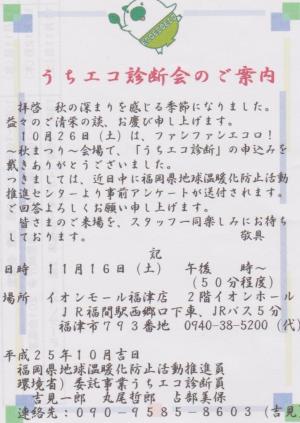 うちエコ診断会のご案内
拝啓 秋の深まりを感じる季節になりました。
益々のご清栄の談、お慶び申し上げます。
10月26日(土)は、ファンファンエコロ!
~秋まつり~会場で、「うちエコ診断」の申込みを
戴きありがとうございました。
つきましては、近日中に福岡県地球温暖化防止活動
推進センターより事前アンケートが送付されます。
ご回答よろしくお願い申し上げます。
皆さまのご来場を、スタッフ一同楽しみにお待ち
しております。 敬具
記
日時 11月16日(土) 午後 時~
(50分程度)
場所 イオンモール福津店 2階イオンホール
JR福間駅西郷口下車、JRバス5分
福津市793番地 0940-38-5200(代)
平成25年10月吉日
福岡県地球温暖化防止活動推進員
環境省)委託事業うちエコ診断員
吉見一郎 丸尾哲郎 占部美保
連絡先:090-9585-8603(吉見)